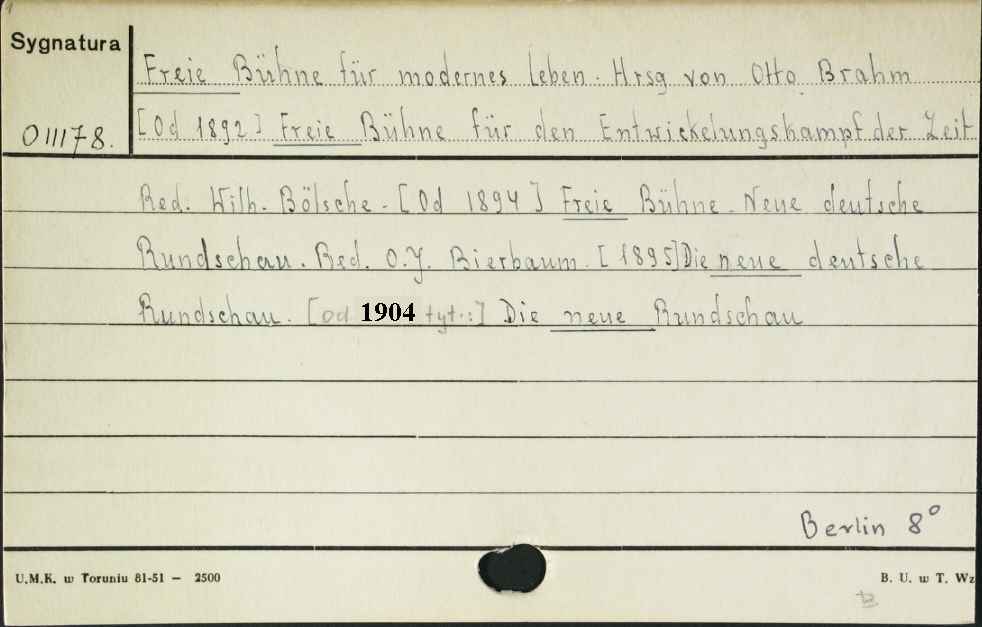 Sygnatura
Freie Bühne für modernes Leben. Hrsg von Otto Brahm
011178.
[Od 1892] Freie Bühne für den Entwickelungskampf der Zeit
Red. Wilh. Bölsche. [Od 1894] Freie Bühne. Neue deutsche
Rundschau. Red. O.J. Bierbaum. [1895] Die neue deutsche
Rundschau. [od 1904 tyt.:] Die neue Rundschau
Berlin 8°
U.M.K. w Toruniu 81-51 — 2500
B. U. w T. Wz